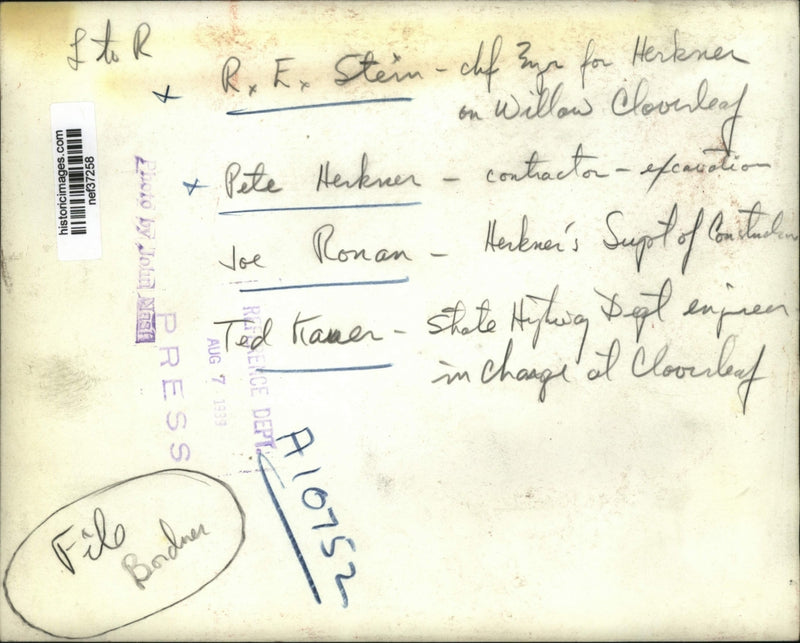 L to R
R. E. Stein - chf Engr for Herkner
on Willow Cloverleaf
Pete Herkner - contractor - excavation
Joe Ronan - Herkner's Supt of Construction
Ted Kauer - State Highway Dept engineer
in charge at Cloverleaf
historicimages.com
nef37258
Photo by John Nash
PRESS
REFERENCE DEPT.
AUG 7 1939
A10752
File
Bordner